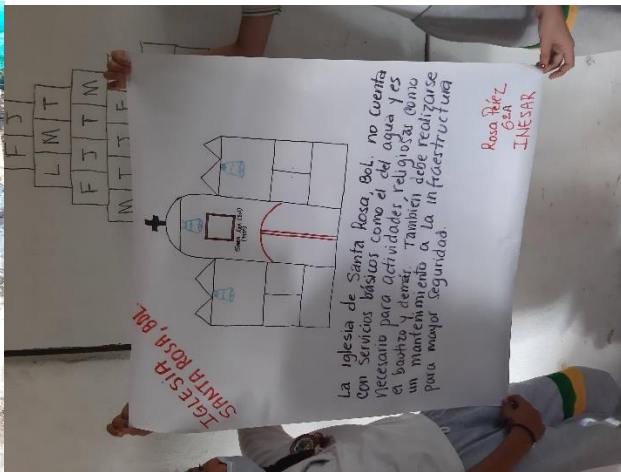 IGLESIA
SANTA ROSA, BOL.
La iglesia de Santa Rosa, BoL. no cuenta
con servicios básicos como el del agua y es
necesario para actividades religiosas como
el bautizo y demás. También debe realizarse
un mantenimiento a la infraestructura
para mayor seguridad.
Rosa Pérez
6ºA
INESAR
F J
L M T
F J T M
M T J F